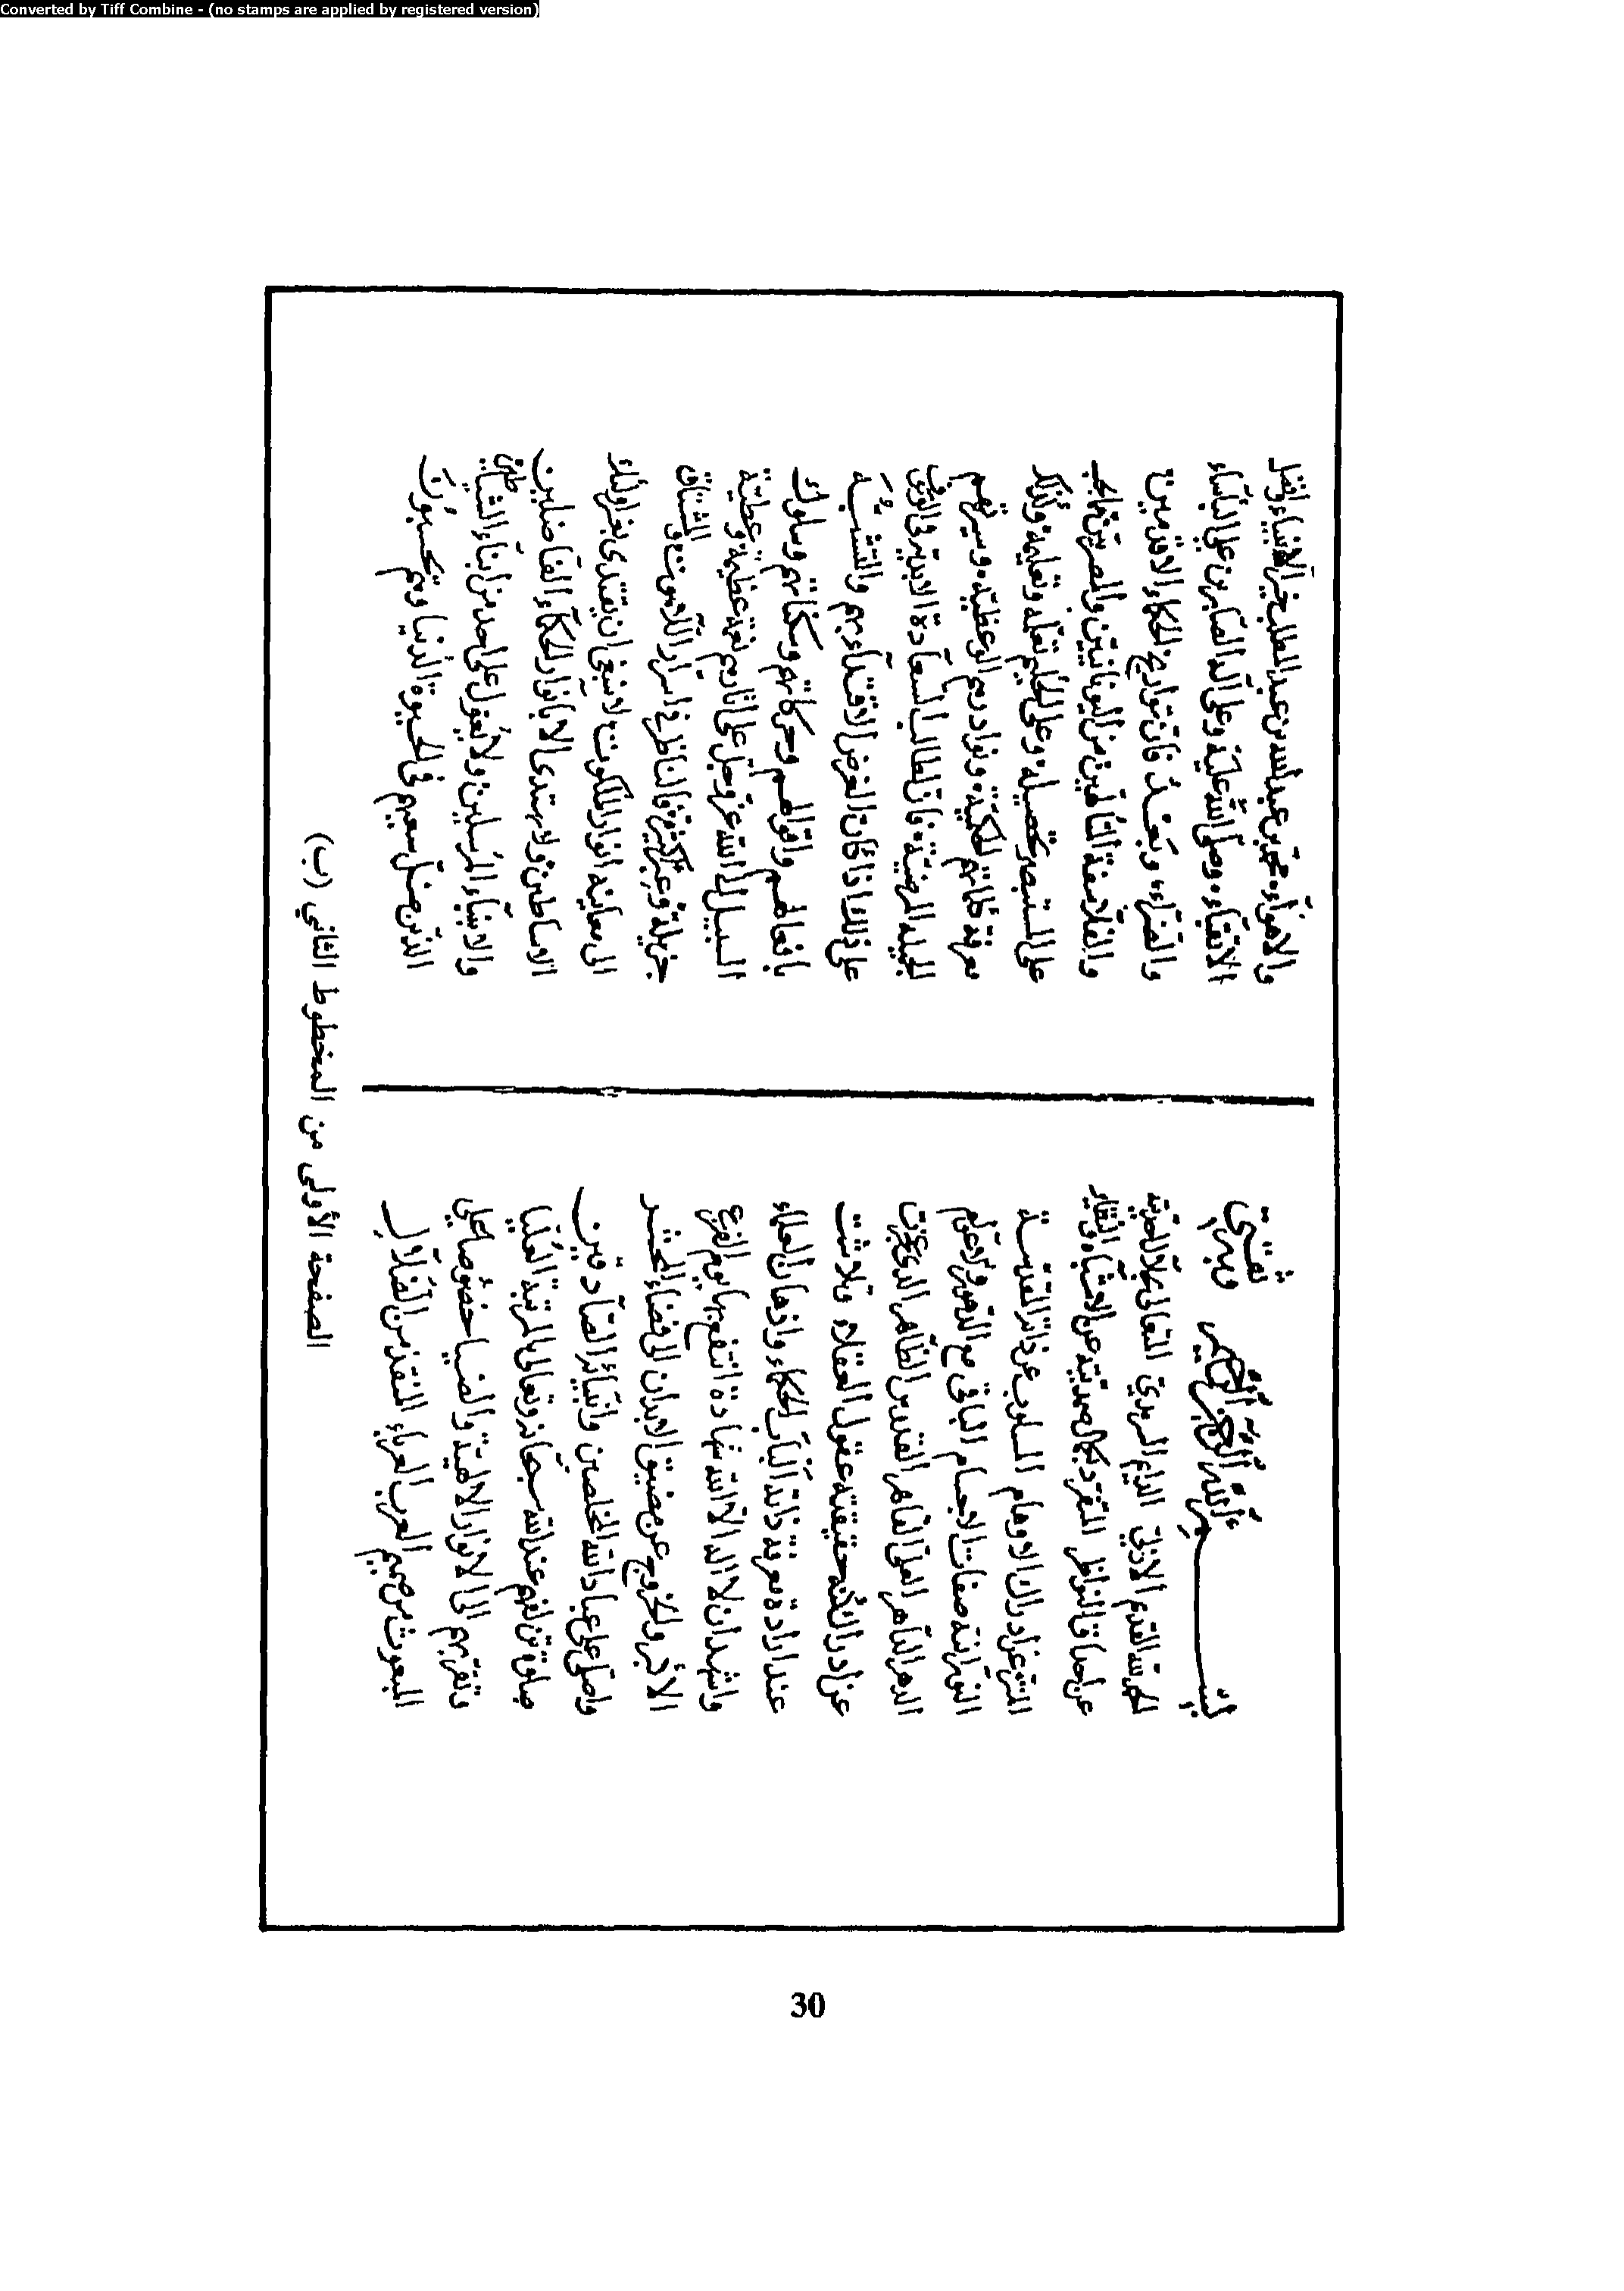 Converted by Tiff Combine - (no stamps are applied by registered version)
بسم الله الرحمن الرحيم وبه ثقتي
الحمد لله القديم الازلي الدايم السرمدي المتعالي بجلال
عن لحاق النواظر المتفرد بكمال صمديته عن الاشباه والنظاير
المتنزه عن ادراك الاوهام المسلوب عن ذاته المقدسة
النورانية صفات الاجسام الباقي مع الدهور والاعوام
العلي القاهر المقدس الظاهر الذي تحيرت
عن ادراك كنه حقيقته عقول العقلاء وتلاشت
عند ارادة معرفة ذاته الحكماء واذهان العلماء
واشهد ان لا اله الا الله شهادة انتفع بها يوم الفزع
الاكبر والخروج عن مضيق الابدان الى فضاء المحشر
واصلي على عباد الله المخلصين وانبيائه الصادقين
صلوة تزلفهم عند الله سبحانه وتعالى بالمرتبة العليا
وتقربهم الى الانوار الالهية والضيا خصوصا على
المبعوث من صميم العرب العرباء المنقذ من الضلال
والاهواء محمد بن عبد الله بن عبد المطلب خير الانبياء وافضل
الاتقياء وصلى الله عليه وعلى آله الصابرين على البأساء
والضراء وبعد فان تواريخ الحكماء الاقدمين
والفلاسفة المتألهين من اليونانيين والمصريين مما يجب
على المستبصر تحصيله وعلى الحكيم تعلمه وتعليمه وتذكر
معرفة كلماتهم الحكمية ونوادرهم الوعظية وسيرتهم
الجميلة المرضية فان لطالب السعادة الابدية
على ذلك اذا كان الغرض الاقتداء بهم والتشبه
بافعالهم واقوالهم وحركاتهم وسكناتهم وسلوك
السبيل الى الله عز وجل على اثارهم نعمة عظيمة وعطية
جزيلة وعبر كثيرة والناظر في اسرار اللاهوت والمشتاق
الى معاينة انوار الملكوت لا ينبغي ان يقتدى بغير اولئك
الاساطين ولا يهتدى الا بانوار الحكماء الفاضلين
والانبياء المرسلين ولا يعول على احد من ابناء الشياطين
الذين ضل سعيهم في الحيوة الدنيا وهم يحسبون
الصفحة الأولى من المخطوط الثاني (ب)
30